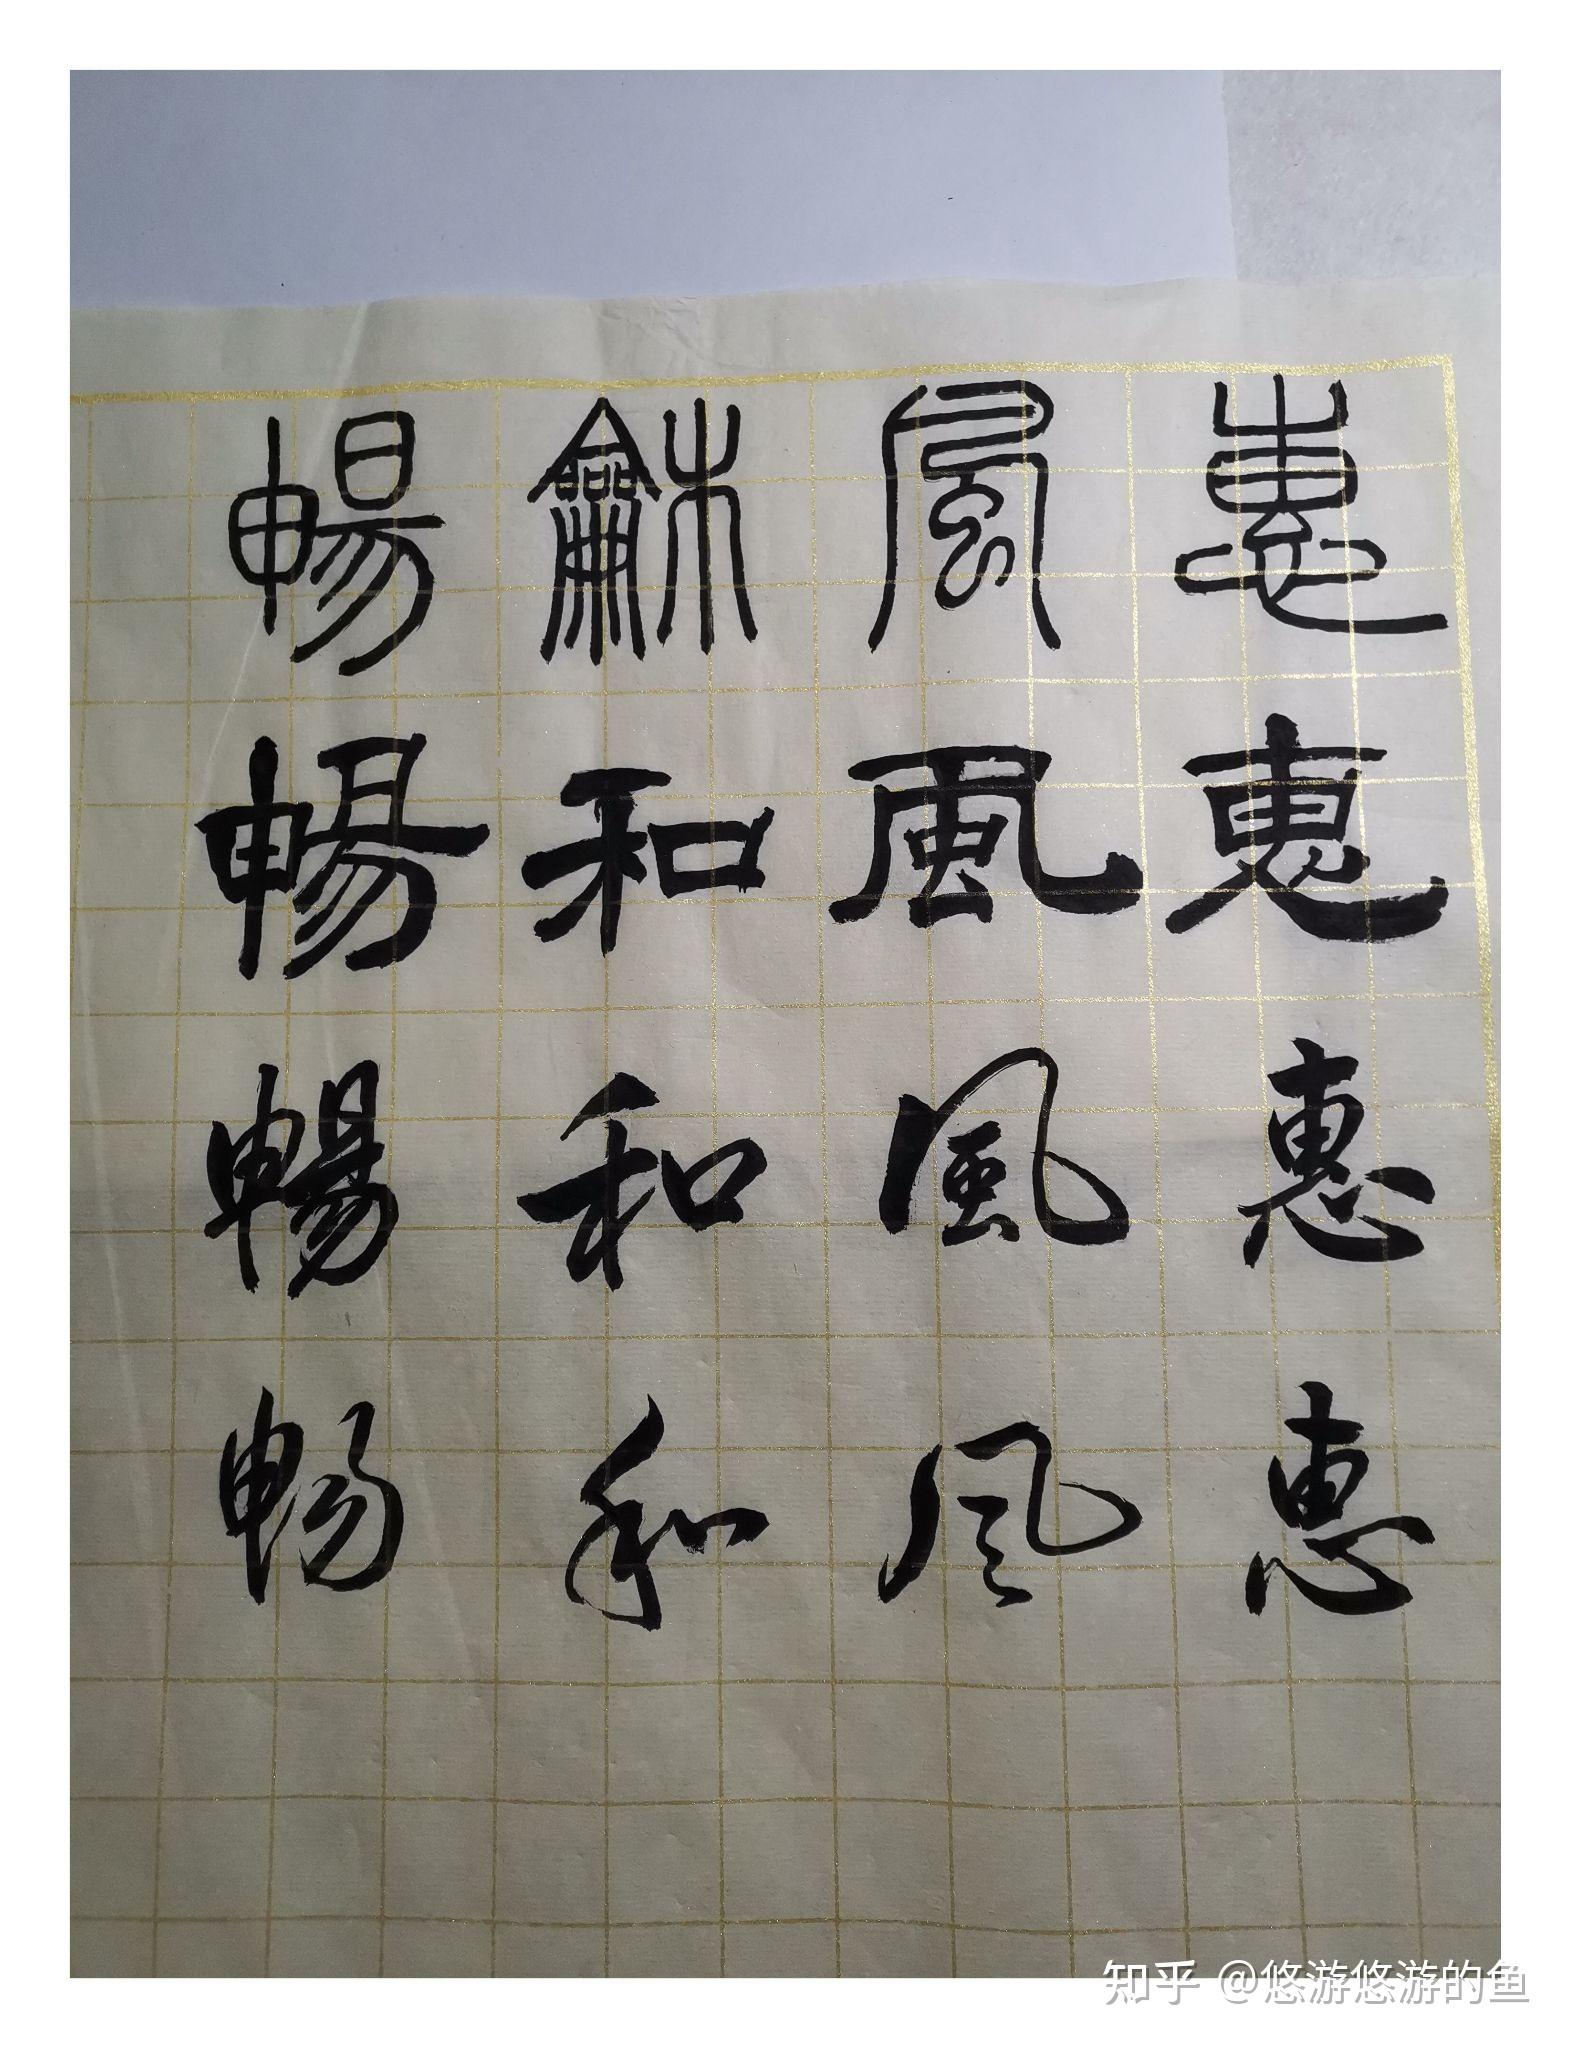 惠惠惠惠
風風風风
龢和和和
暢暢暢畅
知乎 @悠游悠游的鱼